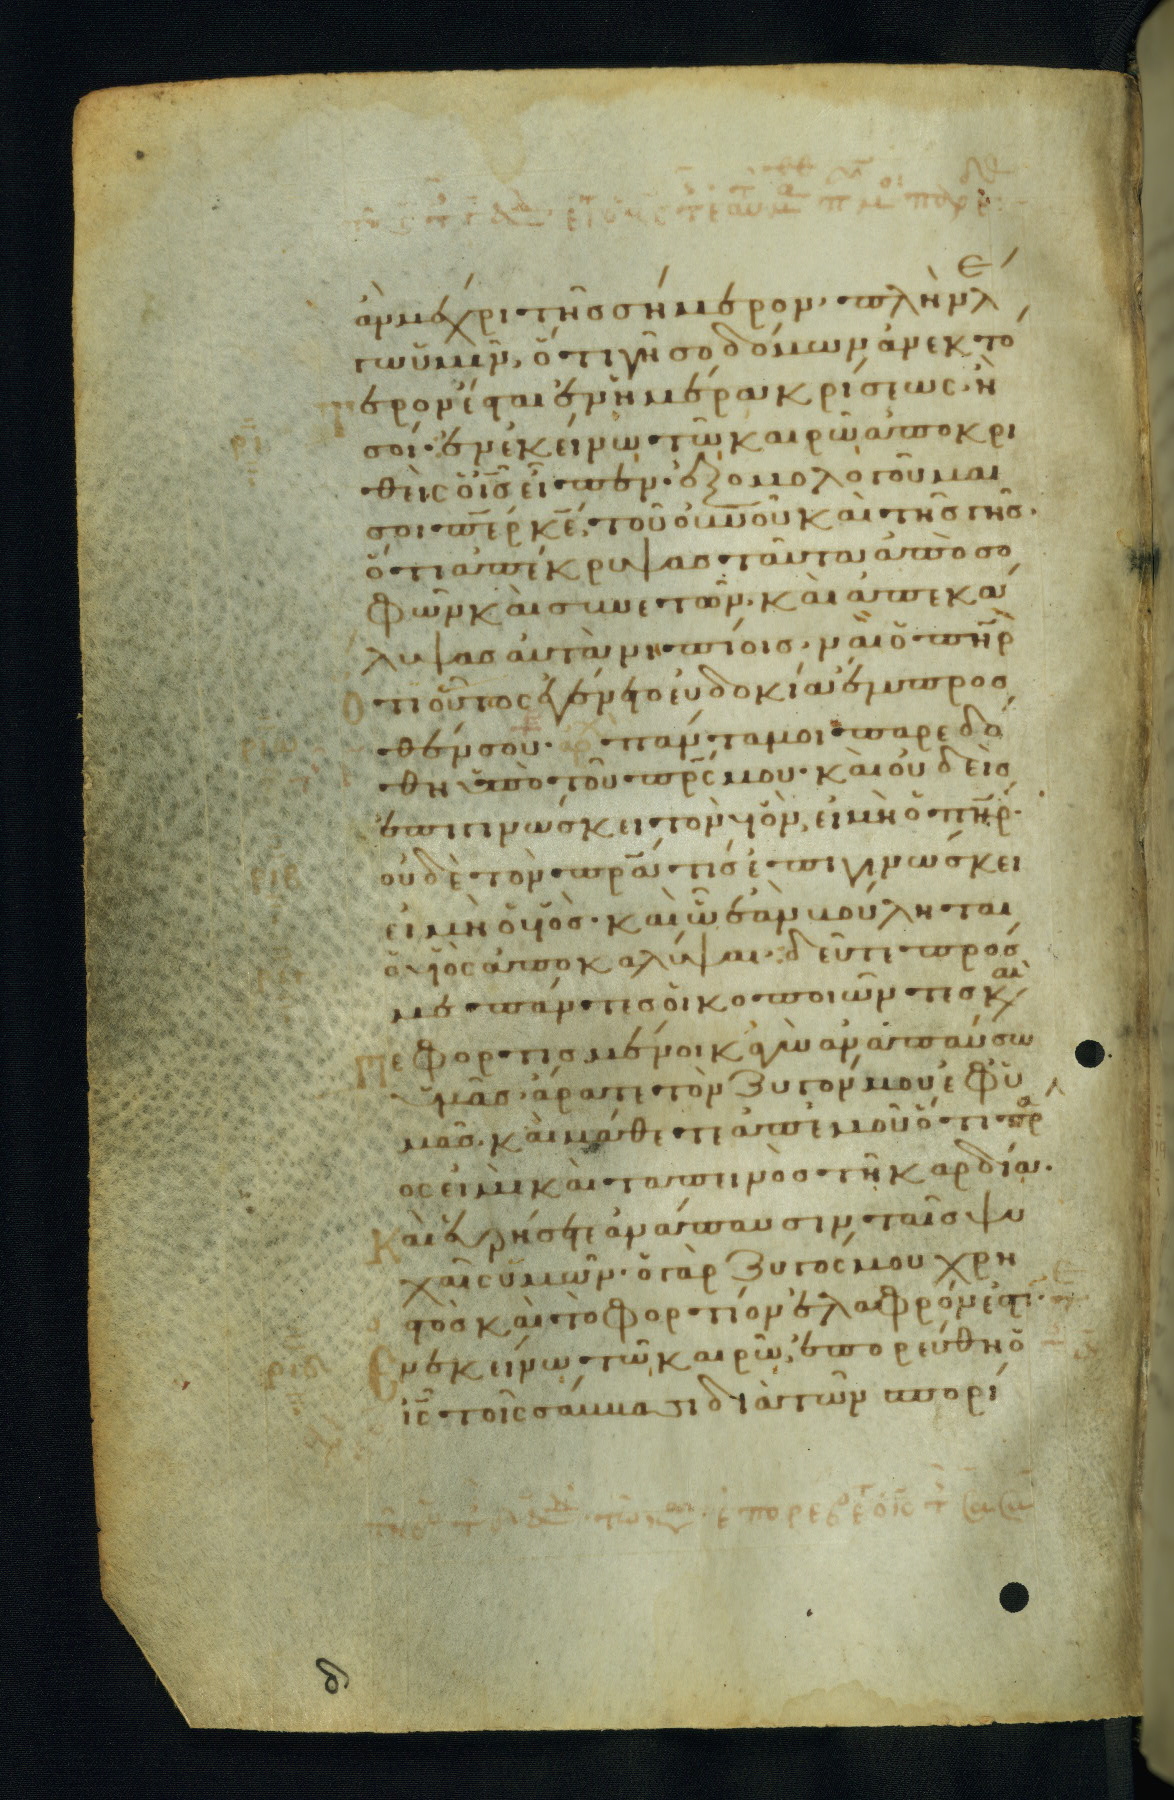 ἂν μεχρι τῆς σήμερον· πλὴν λέ
γω ὑμῖν, ὅτι γῆ σοδόμων ἀνεκτό
τερον ἔσται ἐν ἡμέρα κρίσεως· ἢ
σοί· ἐν ἐκείνω τῶ καιρῶ ἀποκρι
θεὶς ὁ ις εἶπεν· ἐξομολογοῦμαί
σοι περ κε, τοῦ ουνοῦ καὶ τῆς γῆς·
ὅτι ἀπέκρυψας ταῦτα ἀπὸ σο
φῶν καὶ συνετῶν· καὶ ἀπεκά
λυψας αὐτὰ νηπίοις· ναὶ ὁ πηρ
ὅτι οὕτως ἐγένετο εὐδοκία ἔμπροσ
θέν σου· πάντα μοι παρεδό
θη ὑπὸ τοῦ πρς μου· καὶ οὐδεὶς
ἐπιγινώσκει τὸν υἱὸν, εἰ μὴ ὁ πηρ·
οὐδὲ τὸν πρα τίς ἐπιγινώσκει
εἰ μὴ ὁ υἱὸς· καὶ ὧ ἐὰν βούληται
ὁ υἱὸς ἀποκαλύψαι· δεῦτε πρός
με πάντες οἱ κοπιῶντες καὶ
πεφορτισμένοι κἀγὼ ἀναπαύσω
ὑμᾶς· ἄρατε τὸν ζυγόν μου ἐφ ὑ
μᾶς· καὶ μάθετε ἀπ ἐμοῦ ὅτι πρᾶ
ος εἰμὶ καὶ ταπεινὸς τῆ καρδία·
Καὶ εὑρήσετε ἀνάπαυσιν ταῖς ψυ
χαῖς ὑμῶν· ὁ γὰρ ζυγός μου χρη
στὸς καὶ τὸ φορτίον ἐλαφρόν ἐστι·
Ἐν ἐκείνω τῶ καιρῶ, ἐπορεύθη ὁ
ις τοῖς σάββασι διὰ τῶν σπορί
δ